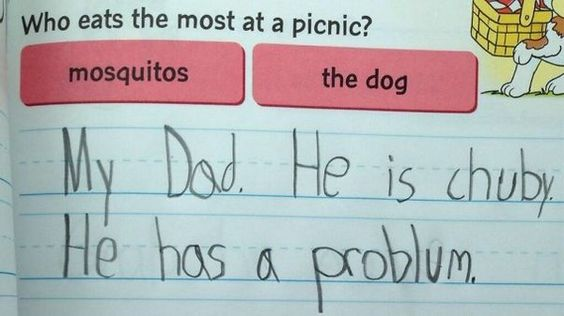 Who eats the most at a picnic?
mosquitos the dog
My Dad. He is chuby.
He has a problum.